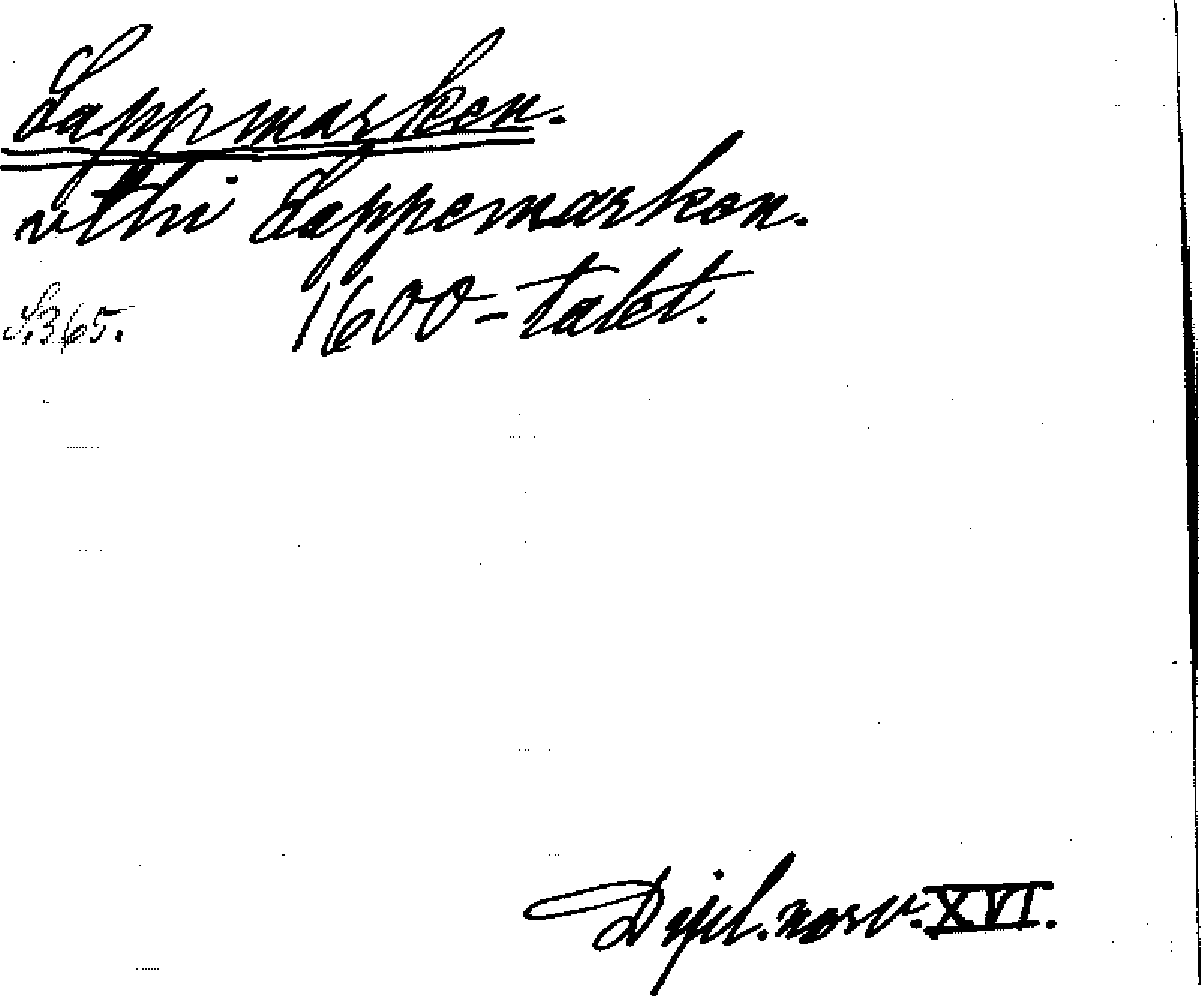 Lappmarken.
vthi Lappemarken.
S. 365. 1600-talet.
Dipl. norv. XVI.